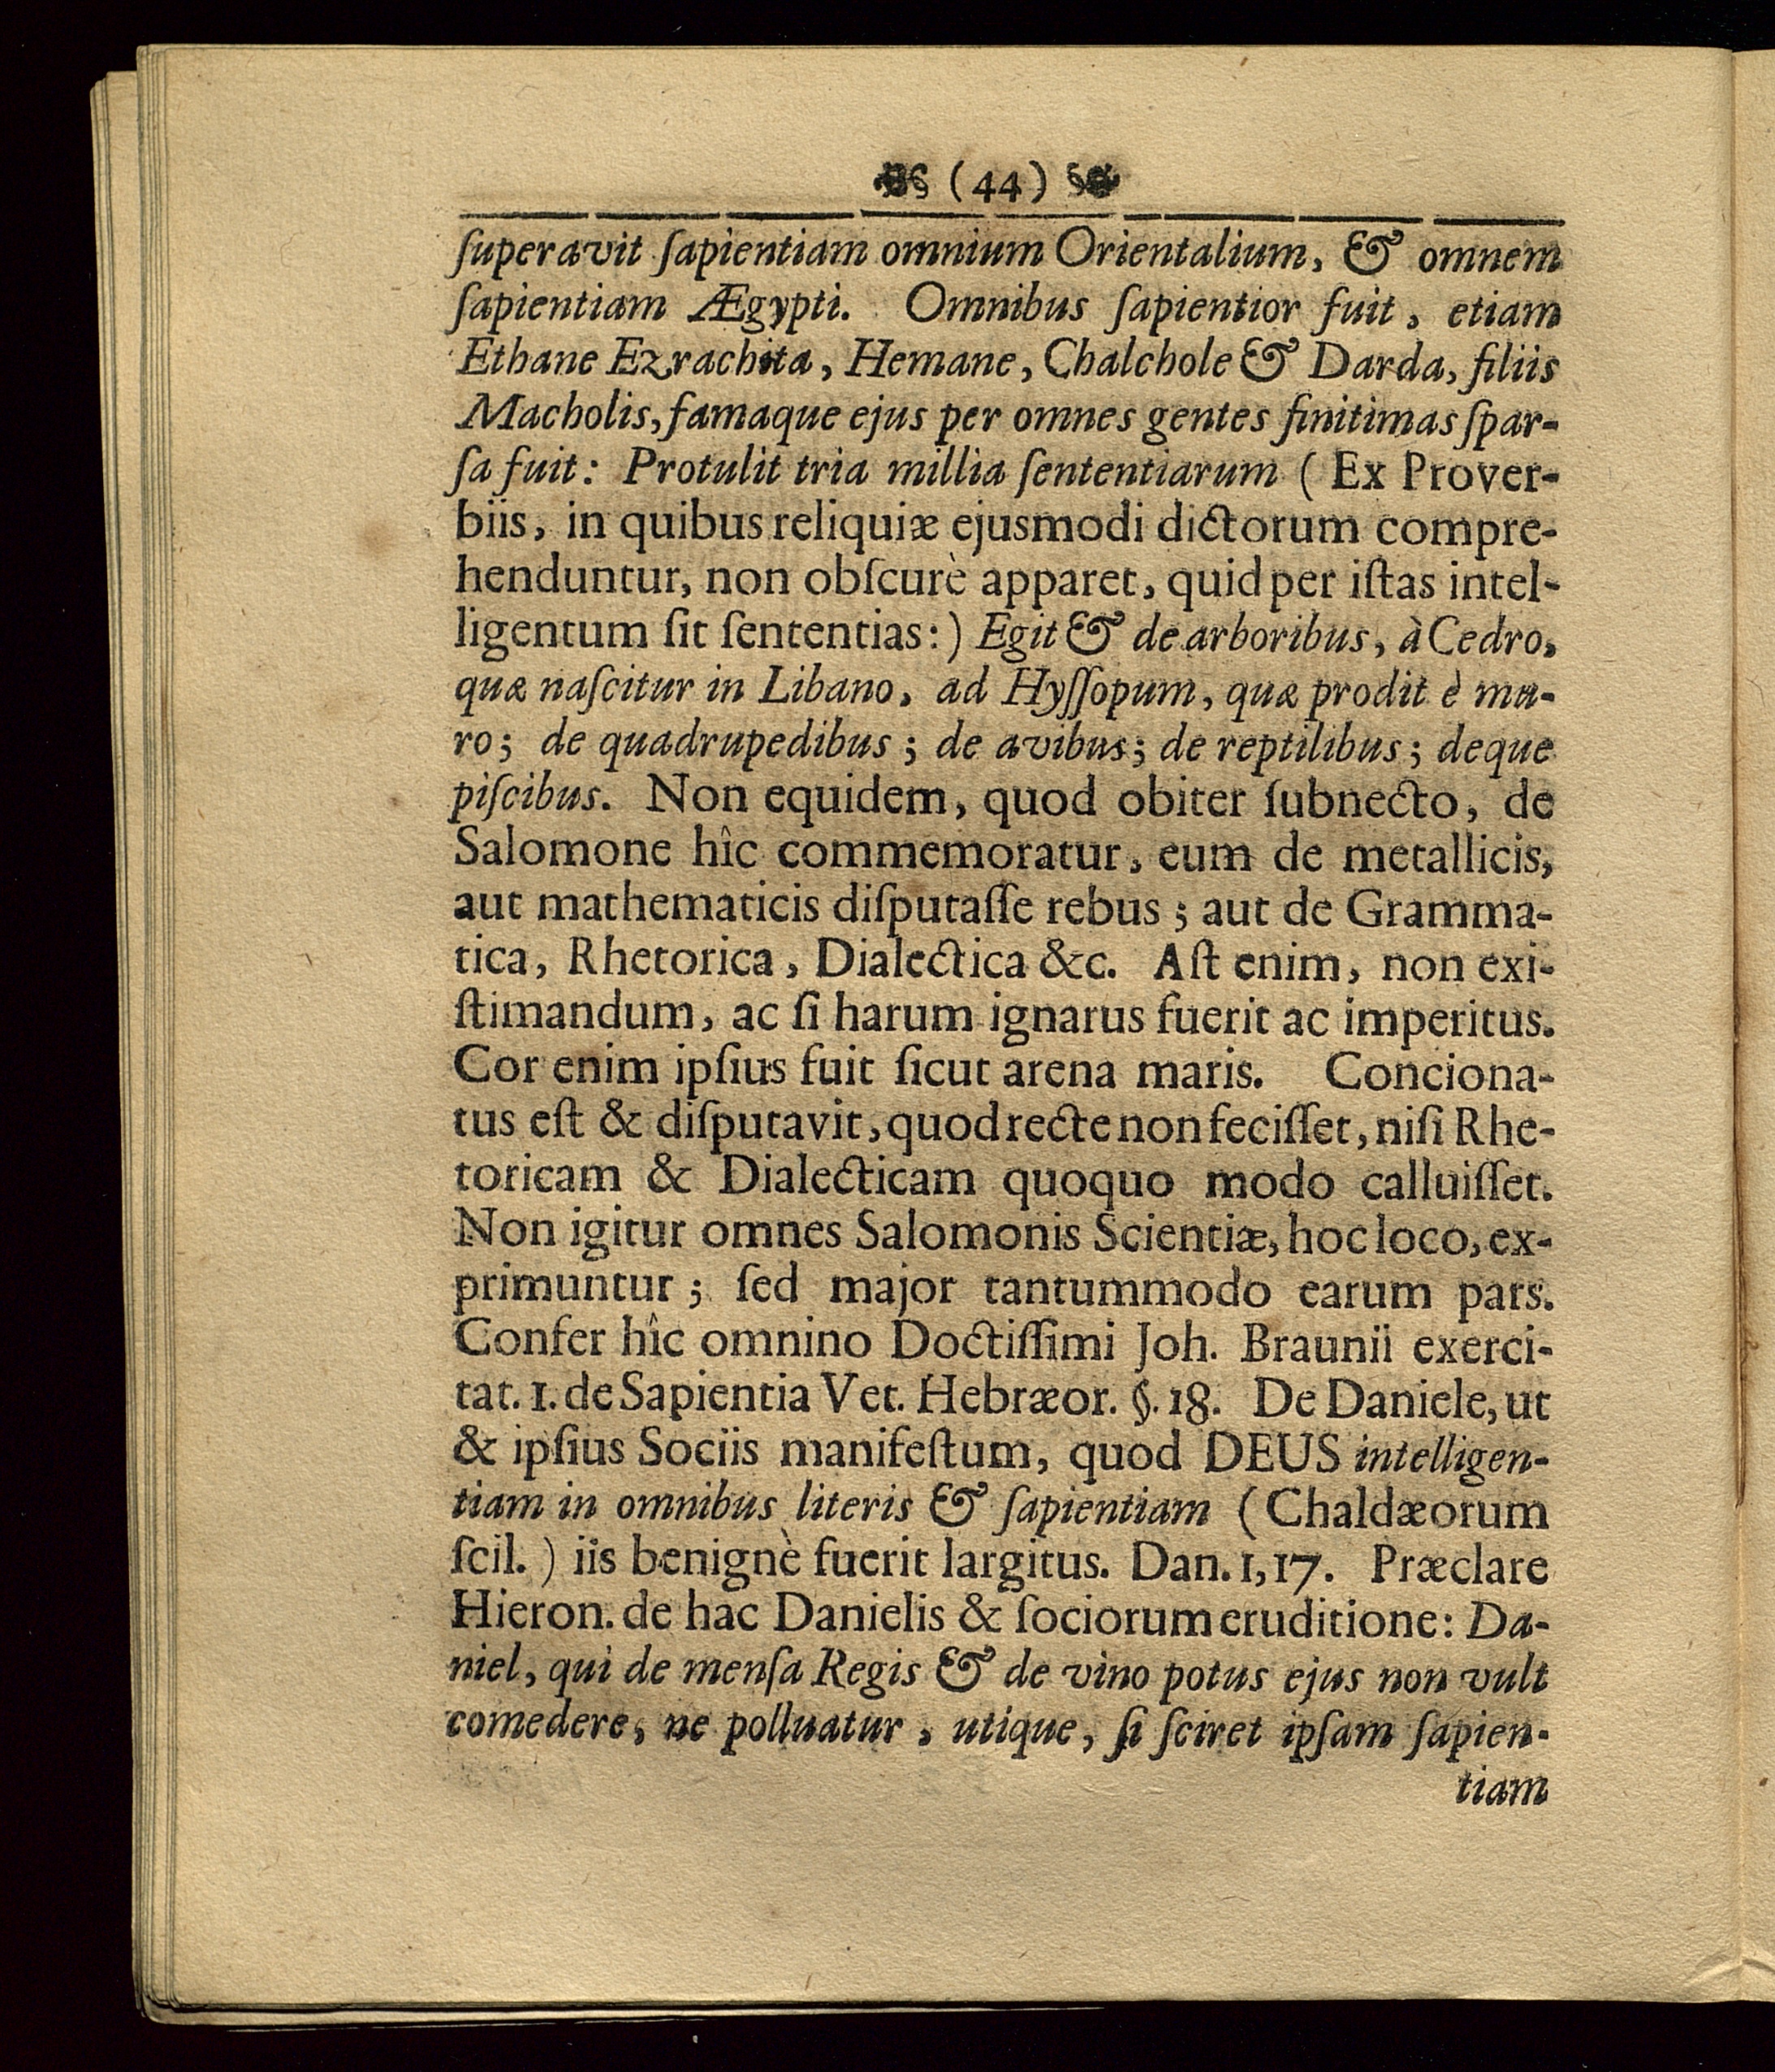 (44)
ſuperavit ſapientiam omnium Orientalium, & omnem
ſapientiam Ægypti. Omnibus ſapientior fuit, etiam
Ethane Ezrachita, Hemane, Chalchole & Darda, filiis
Macholis, famaque ejus per omnes gentes finitimas ſpar-
ſa fuit: Protulit tria millia ſententiarum (Ex Prover-
biis, in quibus reliquiæ ejusmodi dictorum compre-
henduntur, non obſcurè apparet, quid per iſtas intel-
ligentum ſit ſententias:) Egit & de arboribus, à Cedro,
quæ naſcitur in Libano, ad Hyſſopum, quæ prodit è mu-
ro; de quadrupedibus; de avibus; de reptilibus; deque
piſcibus. Non equidem, quod obiter ſubnecto, de
Salomone hîc commemoratur, eum de metallicis,
aut mathematicis diſputaſſe rebus; aut de Gramma-
tica, Rhetorica, Dialectica &c. Aſt enim, non exi-
ſtimandum, ac ſi harum ignarus fuerit ac imperitus.
Cor enim ipſius fuit ſicut arena maris. Conciona-
tus eſt & diſputavit, quod recte non feciſſet, niſi Rhe-
toricam & Dialecticam quoquo modo calluiſſet.
Non igitur omnes Salomonis Scientiæ, hoc loco, ex-
primuntur; ſed major tantummodo earum pars.
Confer hîc omnino Doctiſſimi Joh. Braunii exerci-
tat. 1. de Sapientia Vet. Hebræor. §. 18. De Daniele, ut
& ipſius Sociis manifeſtum, quod DEUS intelligen-
tiam in omnibus literis & ſapientiam (Chaldæorum
ſcil.) iis benignè fuerit largitus. Dan. 1, 17. Præclare
Hieron. de hac Danielis & ſociorum eruditione: Da-
niel, qui de menſa Regis & de vino potus ejus non vult
comedere, ne polluatur, utique, ſi ſciret ipſam ſapien-
tiam